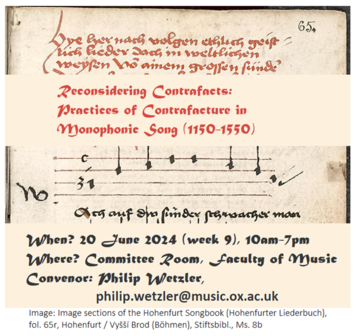 65.
Hye hernach volgen ethlich geist
lich lieder doch in weltlichen
weysen vo ainem grossen sunde
Reconsidering Contrafacts:
Practices of Contrafacture in
Monophonic Song (1150-1550)
C
3
W
Ach auf diu sunder schwacher man
When? 20 June 2024 (week 9), 10am-7pm
Where? Committee Room, Faculty of Music
Convenor: Philip Wetzler,
philip.wetzler@music.ox.ac.uk
Image: Image sections of the Hohenfurt Songbook (Hohenfurter Liederbuch),
fol. 65r, Hohenfurt / Vyšší Brod (Böhmen), Stiftsbibl., Ms. 8b